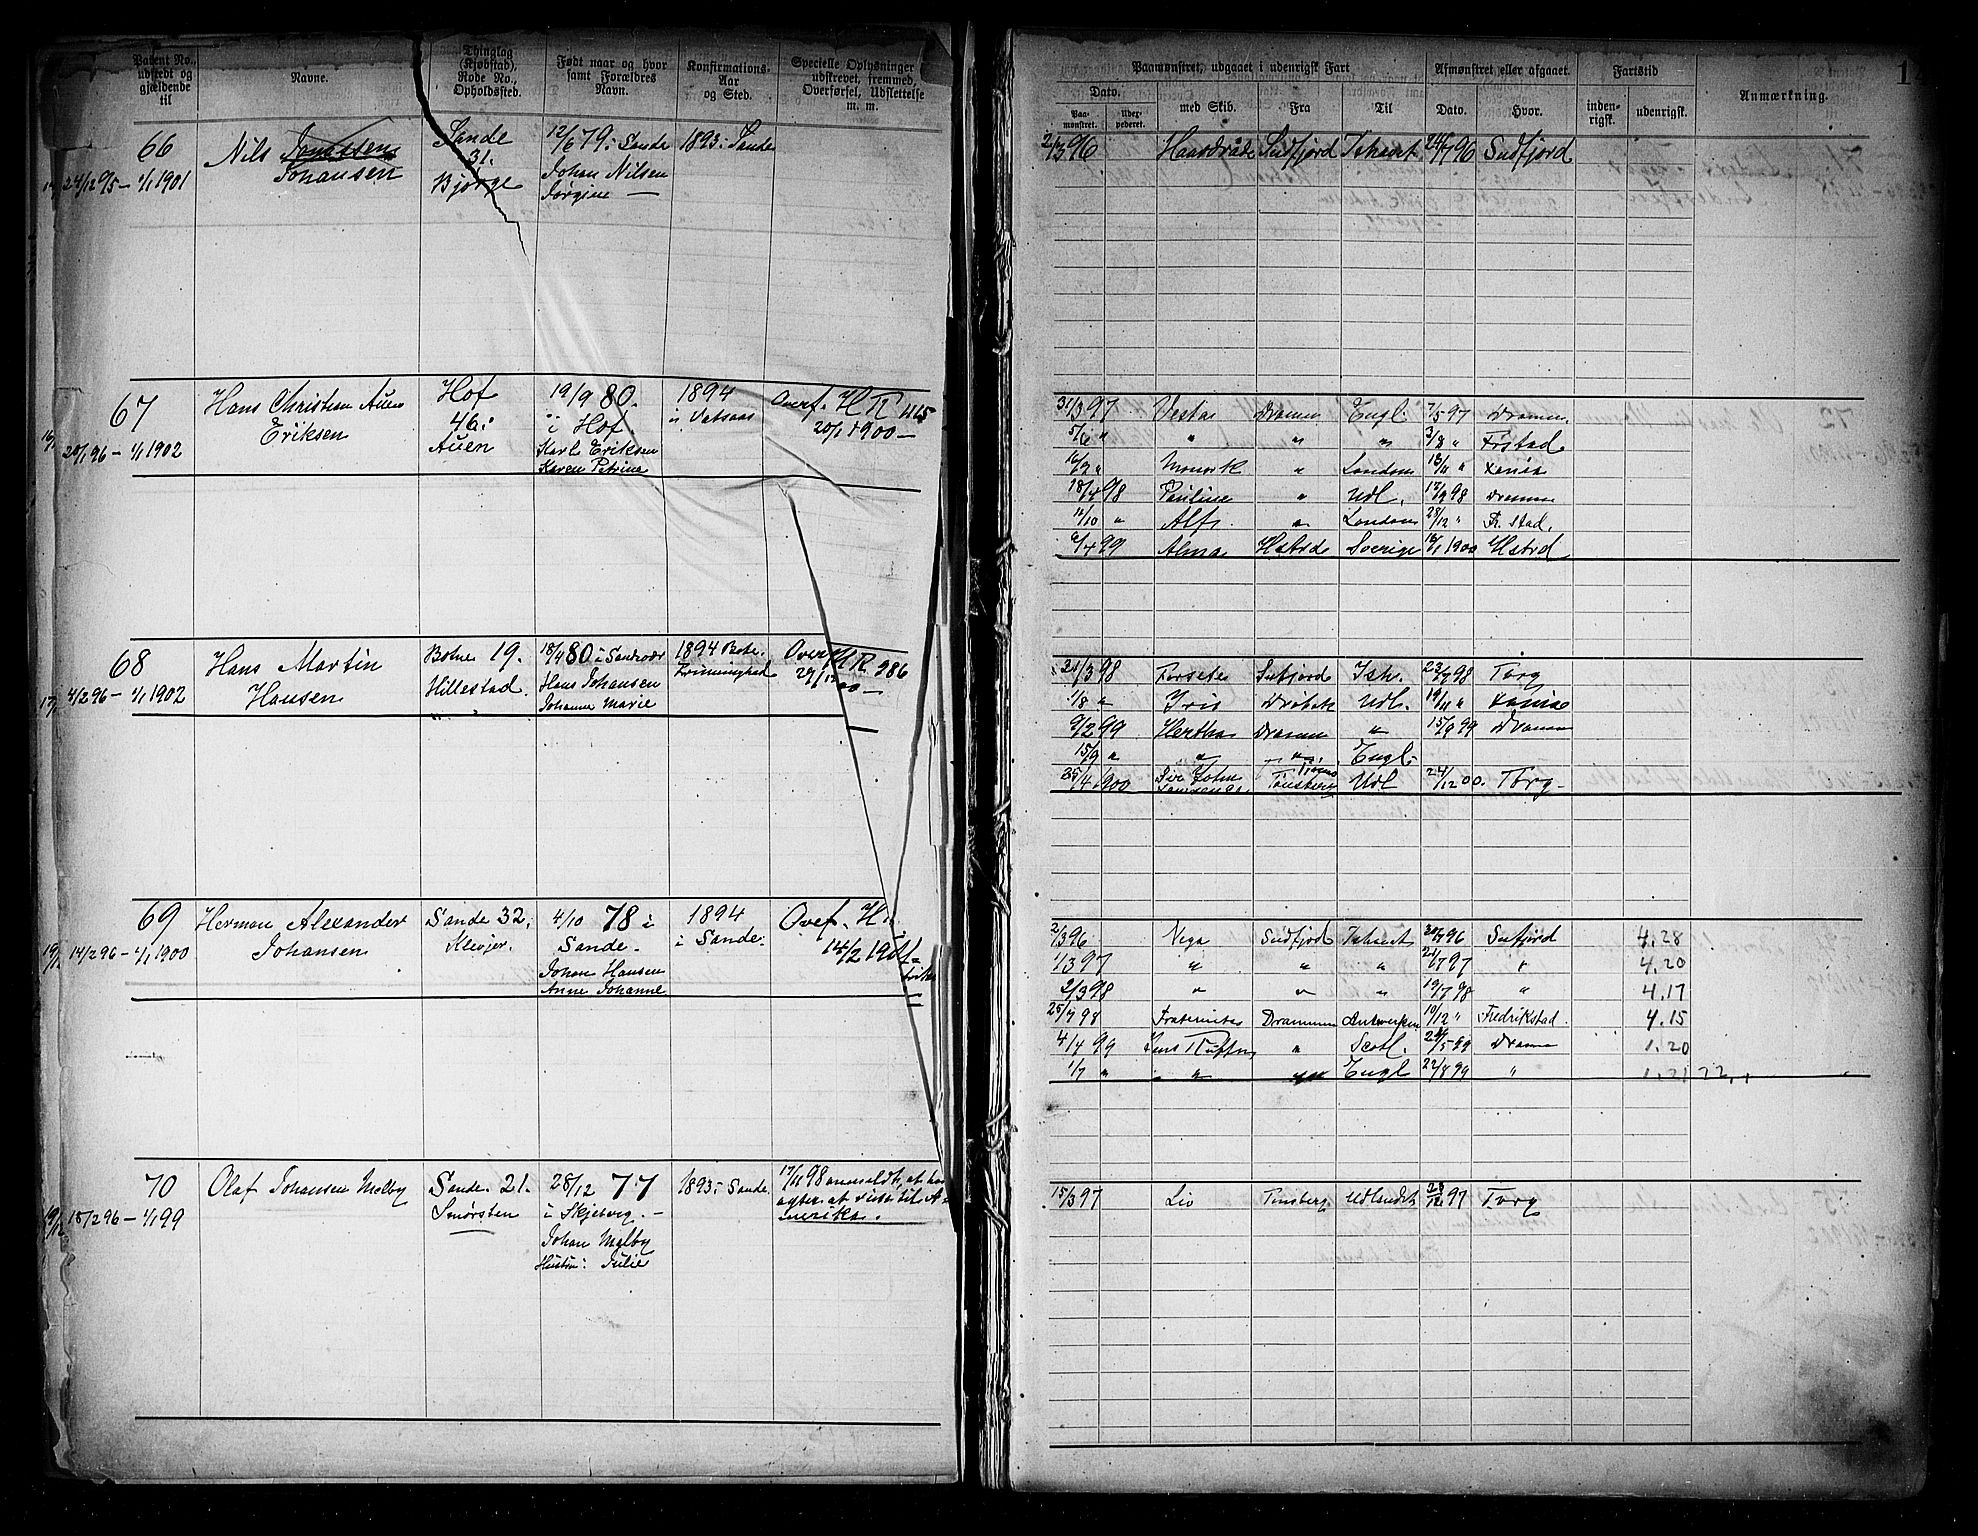 Patent No., udstedt og gjældende til
Navne.
Thinglag (Kjøbstad), Rode No., Opholdssted.
Født naar og hvor samt Forældres Navn.
Konfirmations Aar og Sted.
Specielle Oplysninger udskrevet, fremmed, Overførsel, Udslettelse m. m.
66
24/12 95 – 1/1 1901
Nils
Johansen
Sande
31.
Bjørge
12/6 79 i Sande
Johan Nilsen
Jørgine —
1893 i Sande
67
20/1 96 – 1/1 1902
Hans Christian Auen
Eriksen
Hof
46:
Auen
19/9 80.
i Hof
Karl Eriksen
Karen Petrine
1894
i Vatsaas
Overf. H R 415
20/1 1900 —
68
4/2 96 – 1/1 1902
Hans Martin
Hansen
Botne 19.
Hillestad.
18/4 80 i Sandsvær
Hans Johansen
Johanne Marie
1894 Botne
Overf H R 986
69
14/2 96 – 1/1 1900
Herman Alexander
Johansen
Sande 32.
Klevjer.
4/10 78 i
Sande.
Johan Hansen
Anne Johanne
1894
i Sande.
Ovef. H.
14/2 1901
70
15/2 96 – 1/1 99
Olaf Johansen Melby
Sande 21.
Smørsten
28/12 77
i Skjeberg. –
Johan Melby
Hustru: Julie
1893 i Sande.
17/11 98 anmeldt, at han
agter at reise til A
merika.
Paamønstret, udgaaet i udenrigsk Fart
Afmønstret eller afgaaet.
Fartstid
Anmærkning.
Dato.
Paamønstret. Udexpederet. med Skib. Fra Til Dato. Hvor. indenrigsk. udenrigsk.
2/3 96 Haardraade Sndfjord Ishavet 24/7 96 Sndfjord
31/3 97 Vestas Dramm. Engl. 7/5 97 Dramm.
5/6 " " " " 3/8 " Frstad
16/9 " Monark " London 18/11 "
18/4 98 Pauline " Udl. 17/9 98 Dramm
11/10 " Alfr. " London 28/12 " Fr. stad.
6/4 99 Alma Hstrd Sverige 18/1 1900 Hstrd
21/3 98 Forsete Snfjord Ish. 23/7 98 Tbrg
1/8 " Iris Drøbak Udl. 19/11 "
9/2 99 Hertha Dramm " 15/9 99 Dramm
15/9 " " " Engl.
25/4 1900 Tønsberg Udl 24/12 00. Tbrg –
2/3 96 Vega Sndfjord Ishavet 20/7 96 Snfjord 4.28
1/3 97 " " " 21/7 97 " 4.20
2/3 98 " " " 19/7 98 " 4.17
25/7 98 Fraternitas Drammen Antwerpen 10/12 " Fredrikstad. 4.15
4/4 99 " Scotl. 24/5 99 Dramm 1.20
1/7 " " " Engl 22/8 99 " 1.21 22.
15/3 97 Liv Tønsberg Udlandet 23/12 97 Tbrg